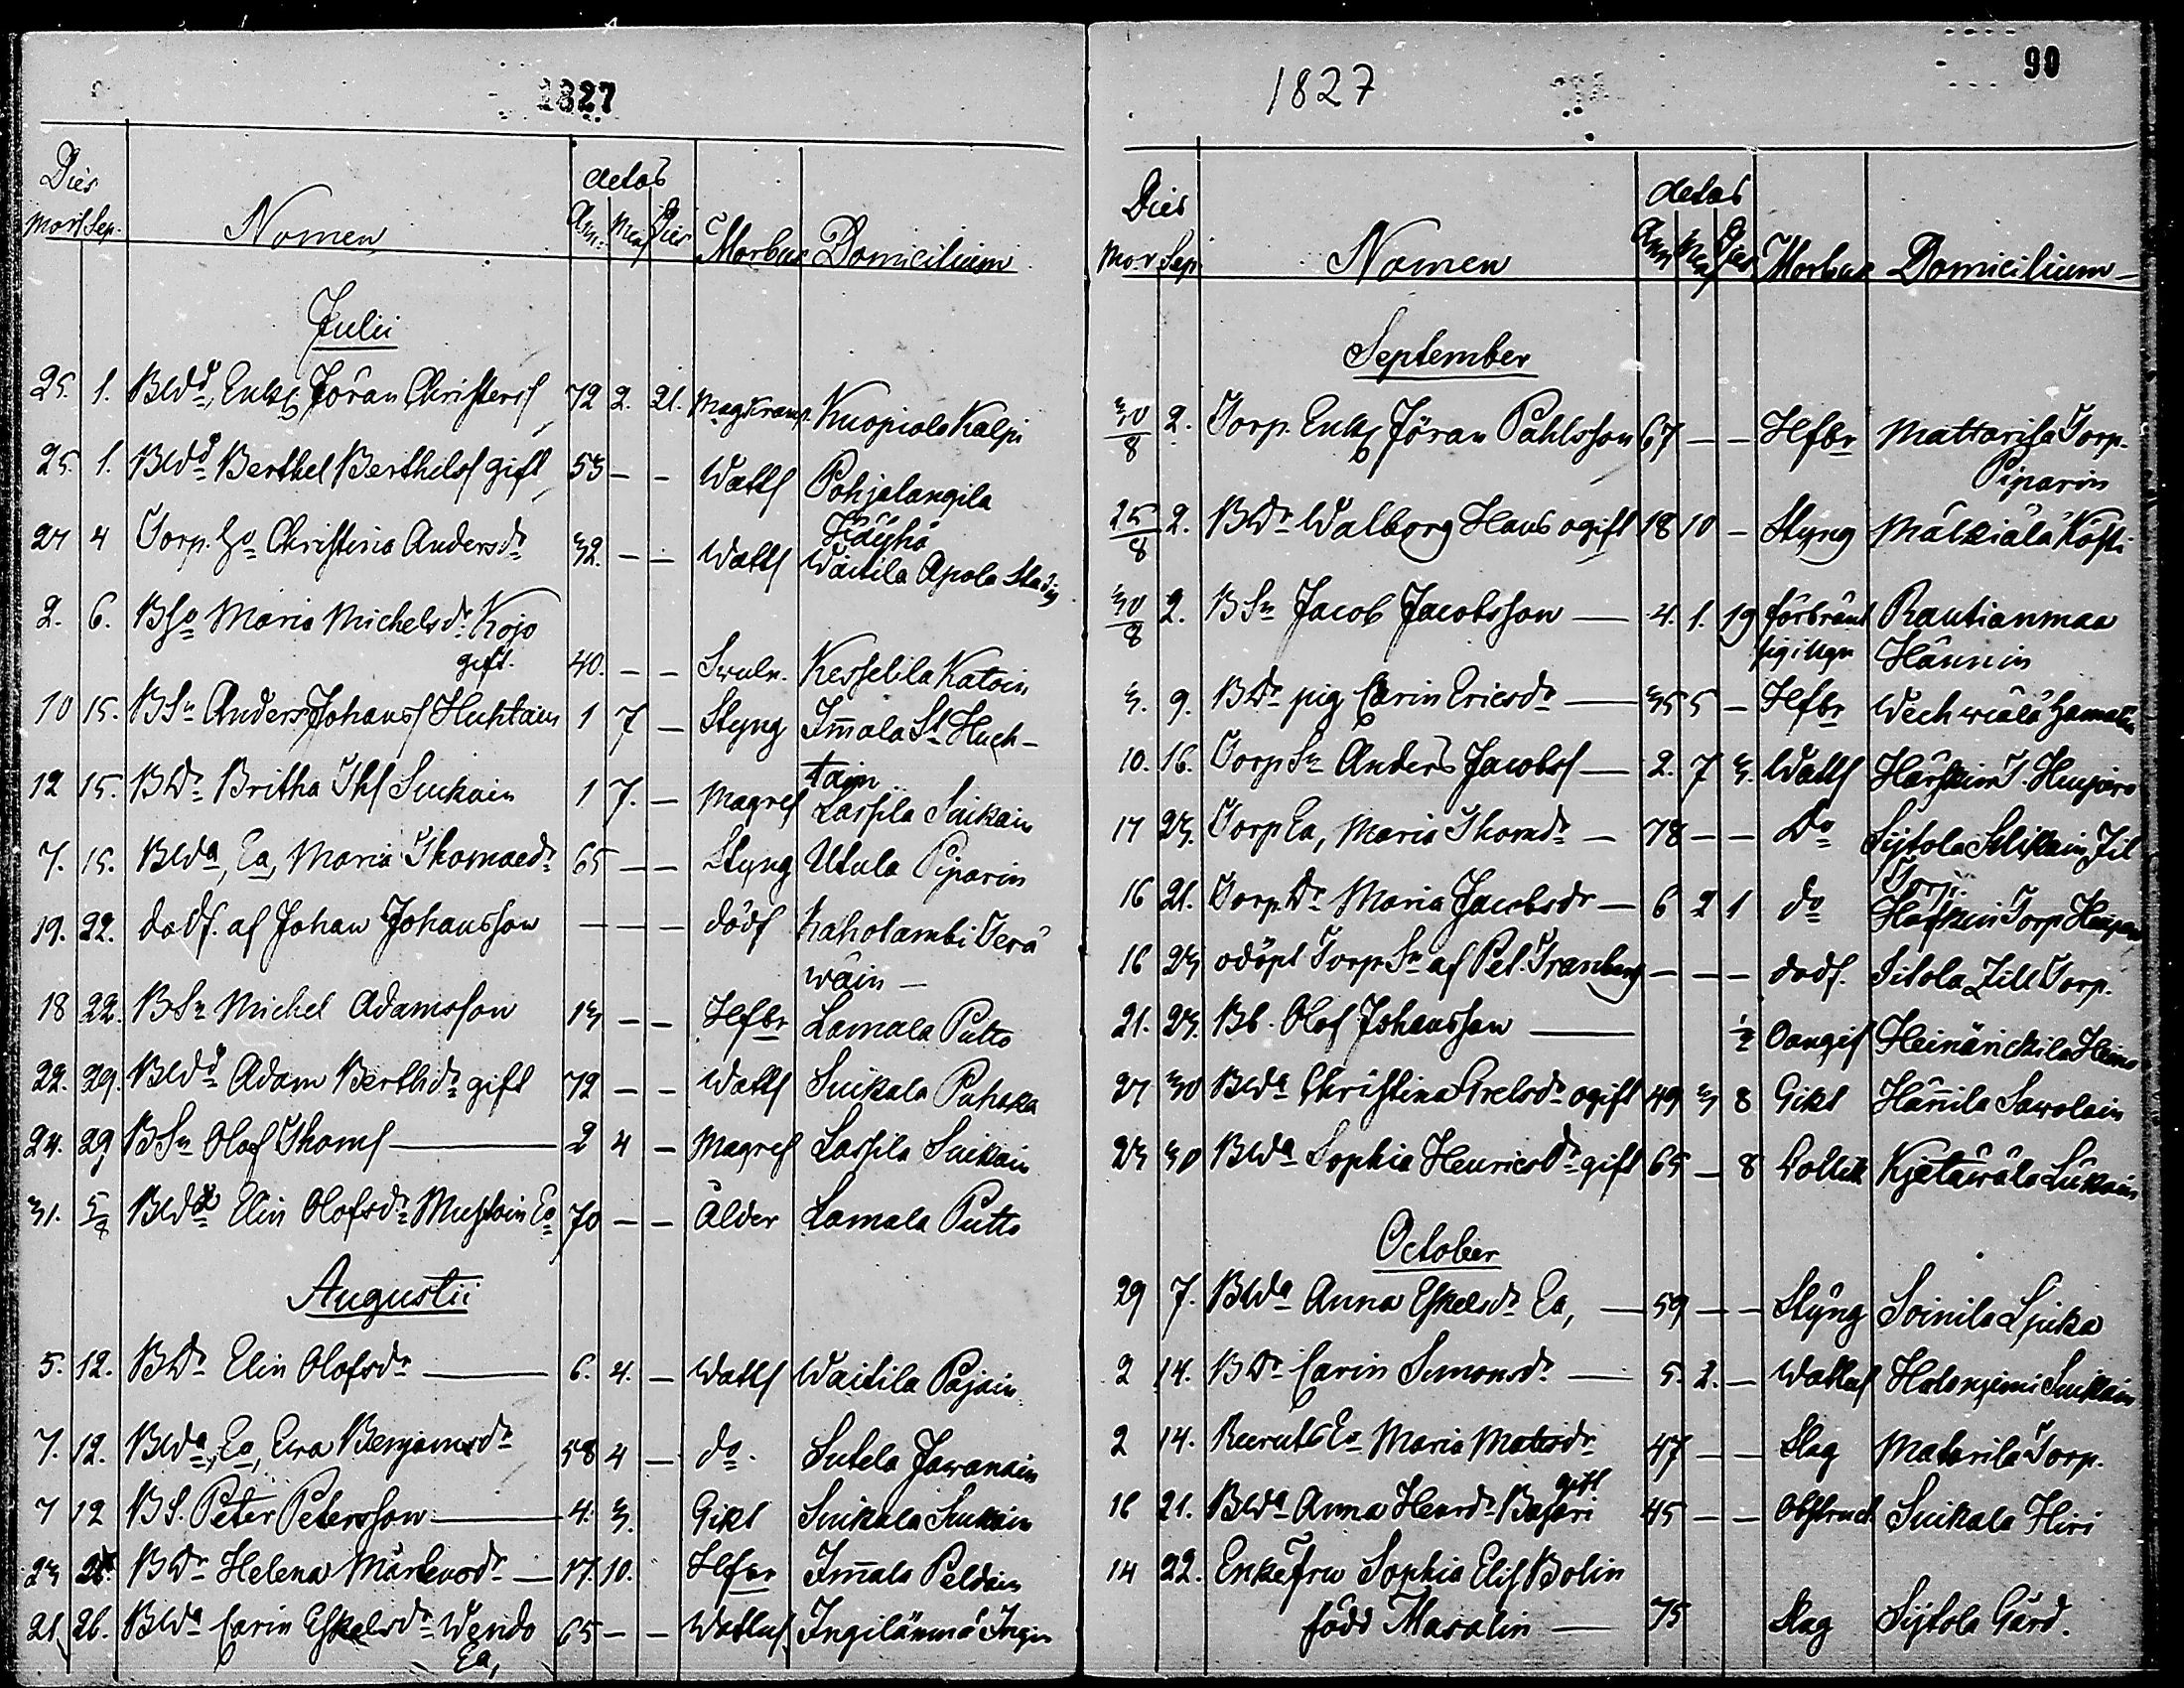 1827
Dies
aetas
Mort Sep. Nomen Ann. Men Dies Morbus Domicilium
Julii
25. 1. Enkl Jöran Christers 72 2. 21. Magkramp. Kuopiala Kalpi
25. 1. Berthel Berthels gift 53 - - Watts Pohjalangila
Häyhä
27 4 Torp. Ho Christina Andersdr 32. - - Watts Waitila Apola
2. 6. Maria Michelsdr Kojo
gift. 40. - - Kesselila Katoin
10 15. BSn Anders Johans Huhtain 1 7 - Styng Immala St Huch-
tain
12 15. BDr Britha Ths Suikain 1 7. - Magref Lassila Suikain
7. 15. Blda, Ea, Maria Thomaedr 65 - - Styng Utula Piparin
19. 22. dödf. af Johan Johansson - - - dödf Kaholambi Terä
wäin -
18 22. BSn Michel Adamsson 13 - - Hfbr Lamala Putto
22. 29. Adam Berthdr gift 72 - - Watts Suikala Pahaka
24. 29 BSn Olof Thoms 2 4 - Magref Lassila Suikain
31. 5/8 Elin Olofsdr Mustoin Ea 70 - - Ålder Lamala Putto
Augustii
5. 12. BDr Elin Olofsdr 6. 4. - Watts Waitila Pajain
7. 12. Blda, Ea, Ewa Benjamsdr 58 4 - do. Sutela Jawanain
7 12 BS. Peter Petersson 4. 3. Gikt Suikala Suikain
23 BDr Helena Mårtensdr - 17. 10. Hfbr Immala Peldain
21 26. Blda Carin Eskelsdr Wendo 65 - - Wattus. Ingilänmä
Ea,
1827
90
Dies
aetas
Mor Sep Nomen Ann Men Dies Morbus Domicilium
September
30/8 2. Torp. Enkl Jöran Pahlsson 67 - - Hfbr Mattarila Torp.
Piparin
25/8 2. BDr Walborg Hans ogift 18 10 - Styng Mälkiälä Kosti
30/8 2. BSn Jacob Jacobsson - 4. 1. 19 förbränt Rautianmaa
sig i ugn Hännin
3. 9. BDr pig Carin Ericsdr - 35 5 - Hfbr
10. 16. Torp Sn Anders Jacobs - 2. 7 3. Watts
17 23. Torp Ea, Maria Thomdr - 78 - - Do Sijtola
Torp.
16 21. Torp. Dr Maria Jacobsdr - 6 2 1 do
16 23 odöpt Torp Sn af Pet. Tranberg - - - dödf. Sitola Zill Torp.
21. 23. Bb. Olof Johansson - 1/2 Oangif
27 30 Blda Christina Prelsdr ogift 49 3 8 Gikt Hännila Sawolain
23 30 Blda Sophia Henricsdr gift 65 - 8 Kjetäwälä
October
29 7. Blda Anna Eskelsdr Ea, - 59 - - Styng Soinila
2 14. BDr Carin Simonsdr - 5. 2. - Wattus
2 14. Recruts Ea Maria Matsdr 47 - - Slag Matarila Torp.
gift
16 21. Blda Anna Henrdr 45 - - Obstruct Suikala Hiri
14 22. Enkefru Sophia Elis Bolin
född Masalin - 75 Slag Sijtola Gård.